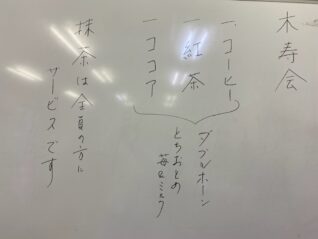 木寿会
一、コーヒー
一、紅茶
一、ココア
ダブルホーン
とちおとめ
苺&ミルク
抹茶は全員の方に
サービスです